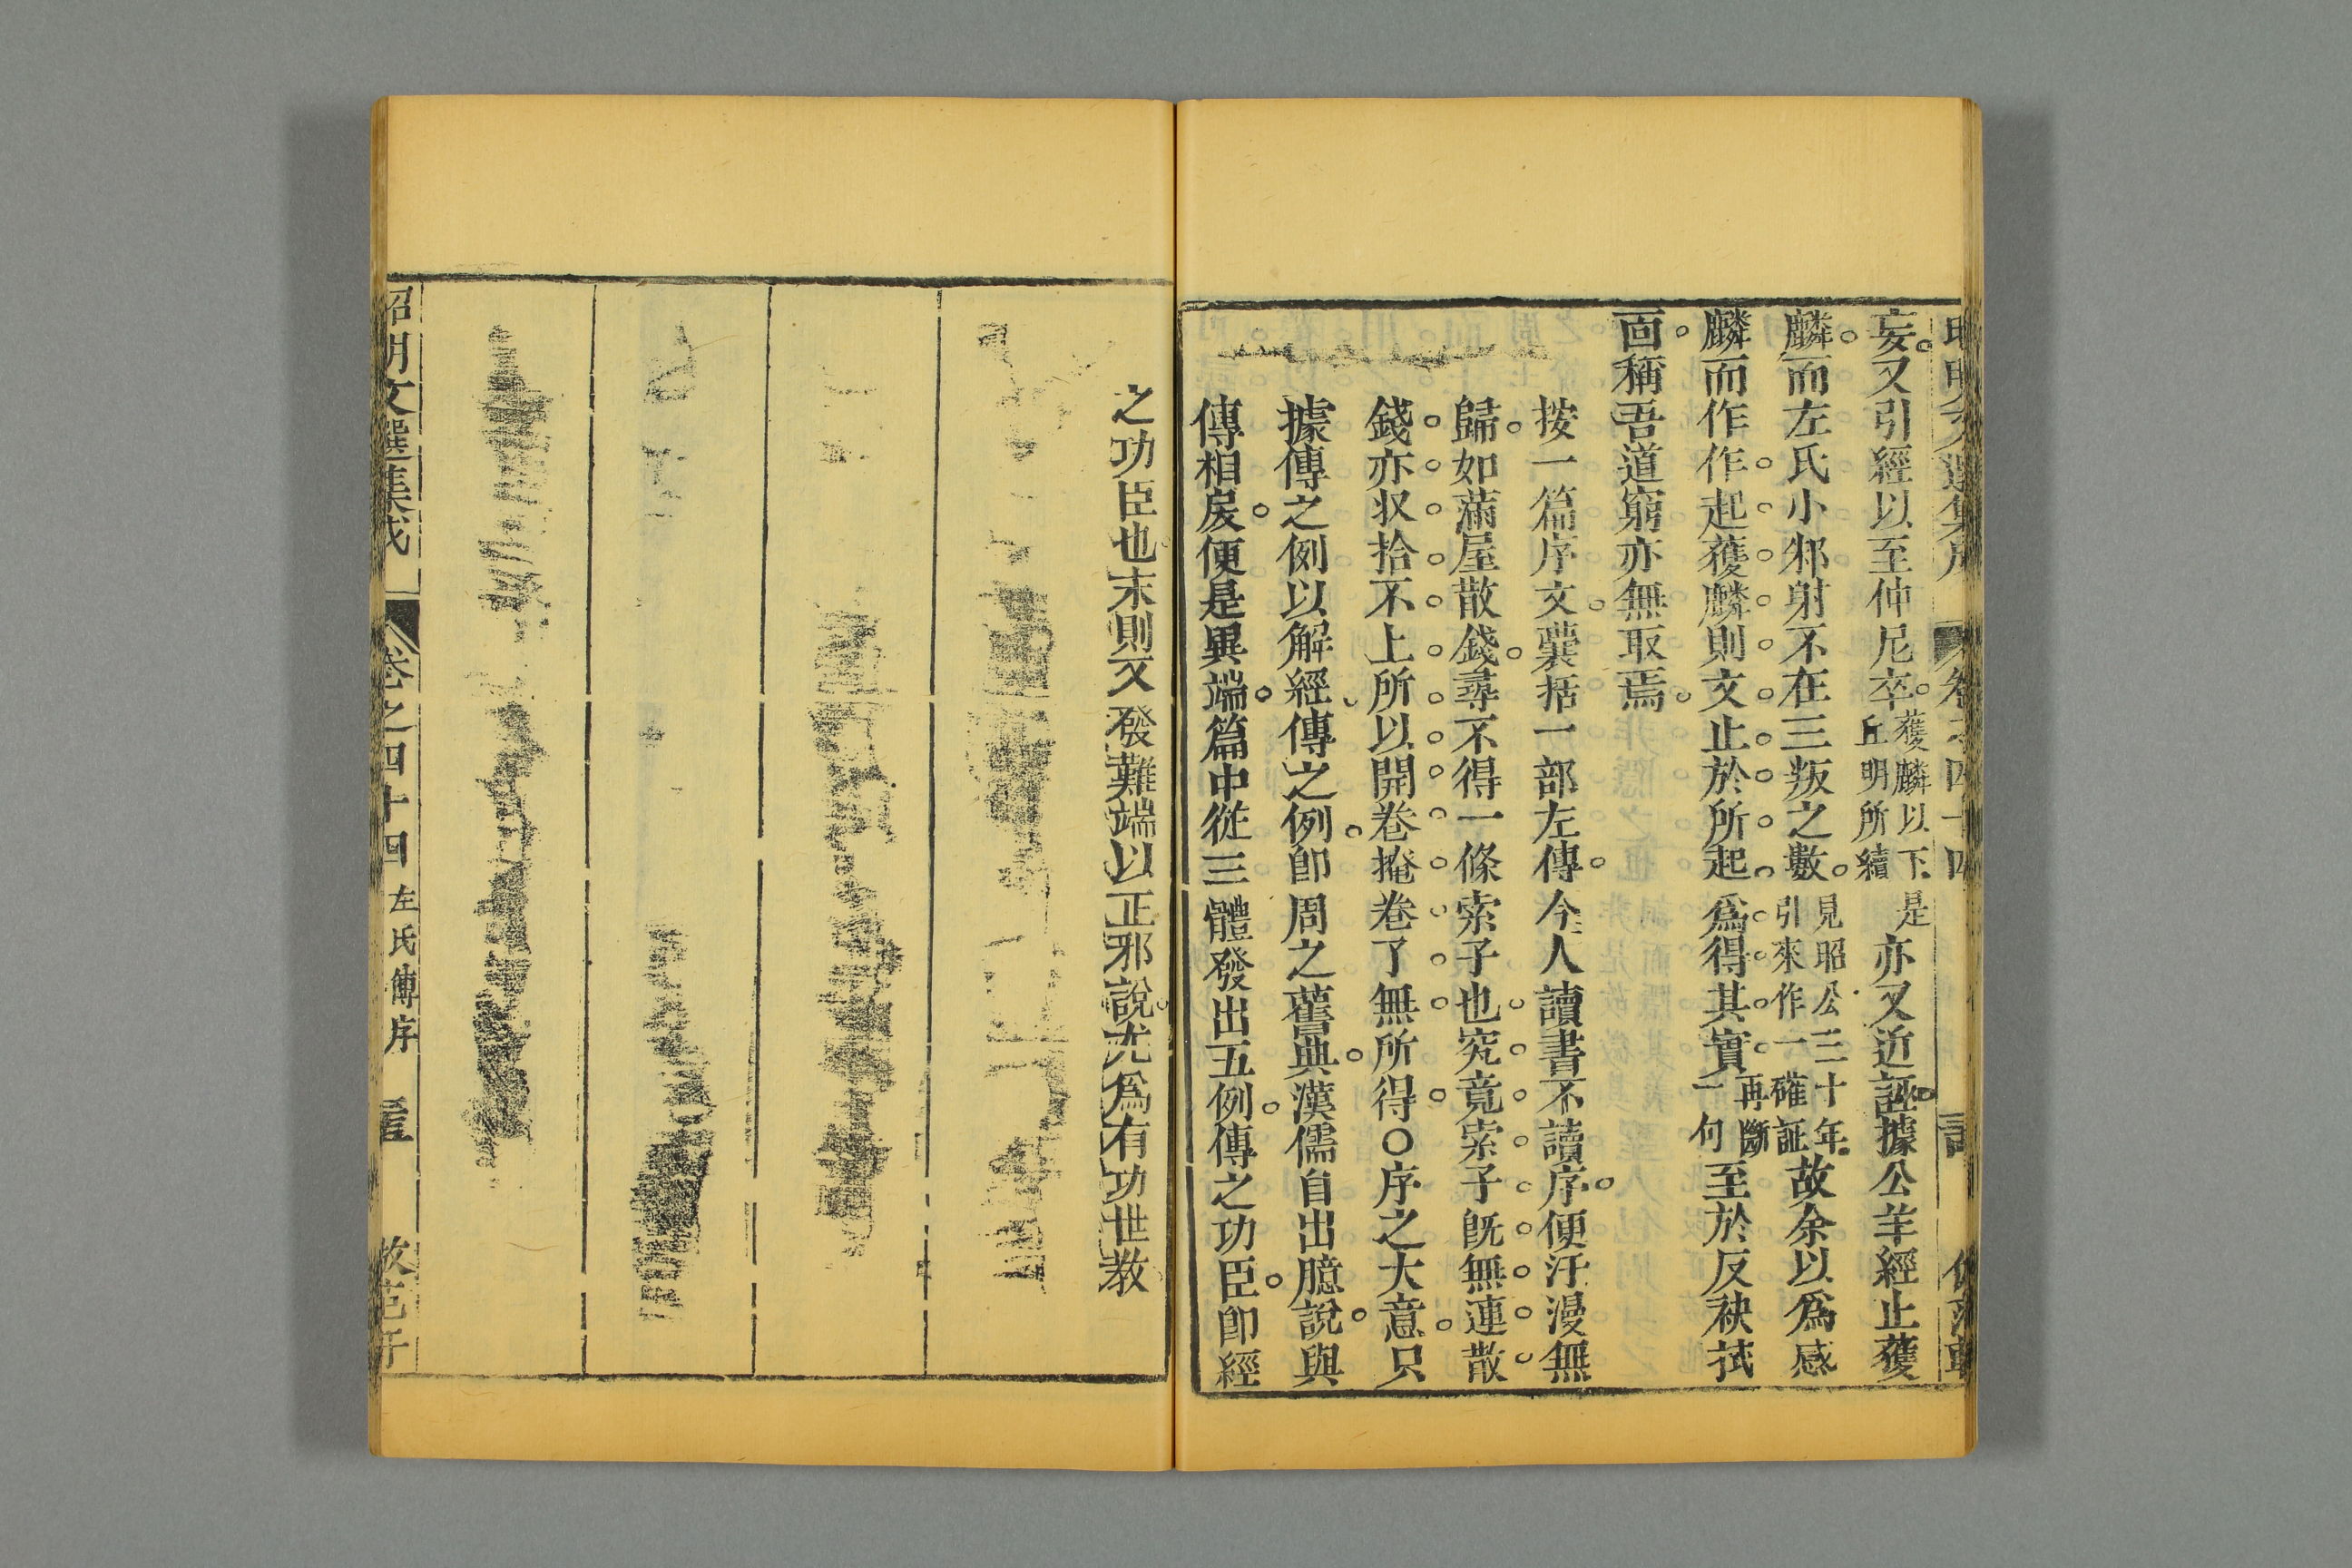 妄又引經以至仲尼卒獲麟以下是丘明所續亦又近誣據公羊經止獲
麟而左氏小邾射不在三叛之數見昭公三十年引來作一確証故余以爲感
麟而作作起獲麟則文止於所起爲得其實再斷一句至於反袂拭
面稱吾道窮亦無取焉
按一篇序文囊括一部左傳今人讀書不讀序便汗漫無
歸如滿屋散錢尋不得一條索子也究竟索子既無連散
錢亦収拾不上所以開卷掩卷了無所得○序之大意只
據傳之例以解經傳之例卽周之舊典漢儒自出臆說與
傳相戾便是異端篇中從三體發出五例傳之功臣卽經
之功臣也末則又發難端以正邪說尤爲有功世教
昭明文選集成 卷之四十四 左氏傳序